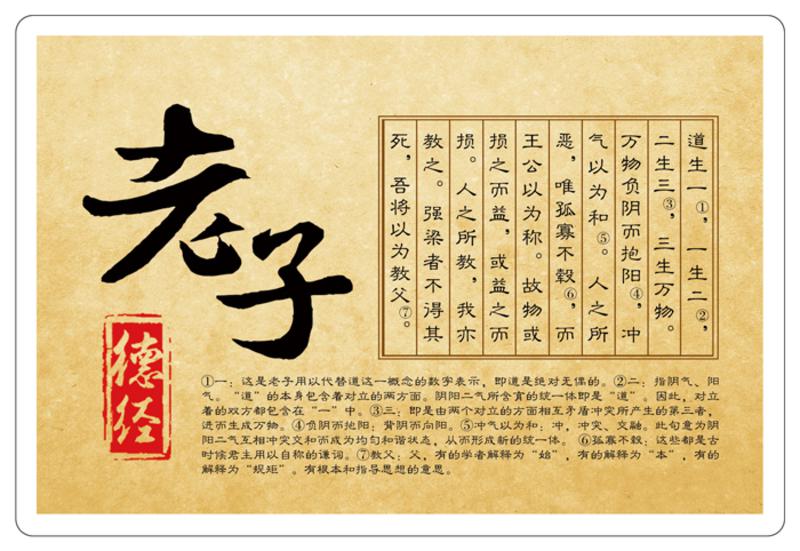 老子
德经
道生一①，一生二②，
二生三③，三生万物。
万物负阴而抱阳④，冲
气以为和⑤。人之所
恶，唯孤寡不毂⑥，而
王公以为称。故物或
损之而益，或益之而
损。人之所教，我亦
教之。强梁者不得其
死，吾将以为教父⑦。
①一：这是老子用以代替道这一概念的数字表示，即道是绝对无偶的。②二：指阴气、阳
气。“道”的本身包含着对立的两方面。阴阳二气所含育的统一体即是“道”。因此，对立
着的双方都包含在“一”中。③三：即是由两个对立的方面相互矛盾冲突所产生的第三者，
进而生成万物。④负阴而抱阳：背阴而向阳。⑤冲气以为和：冲，冲突、交融。此句意为阴
阳二气互相冲突交和而成为均匀和谐状态，从而形成新的统一体。⑥孤寡不毂：这些都是古
时候君主用以自称的谦词。⑦教父：父，有的学者解释为“始”，有的解释为“本”，有的
解释为“规矩”。有根本和指导思想的意思。